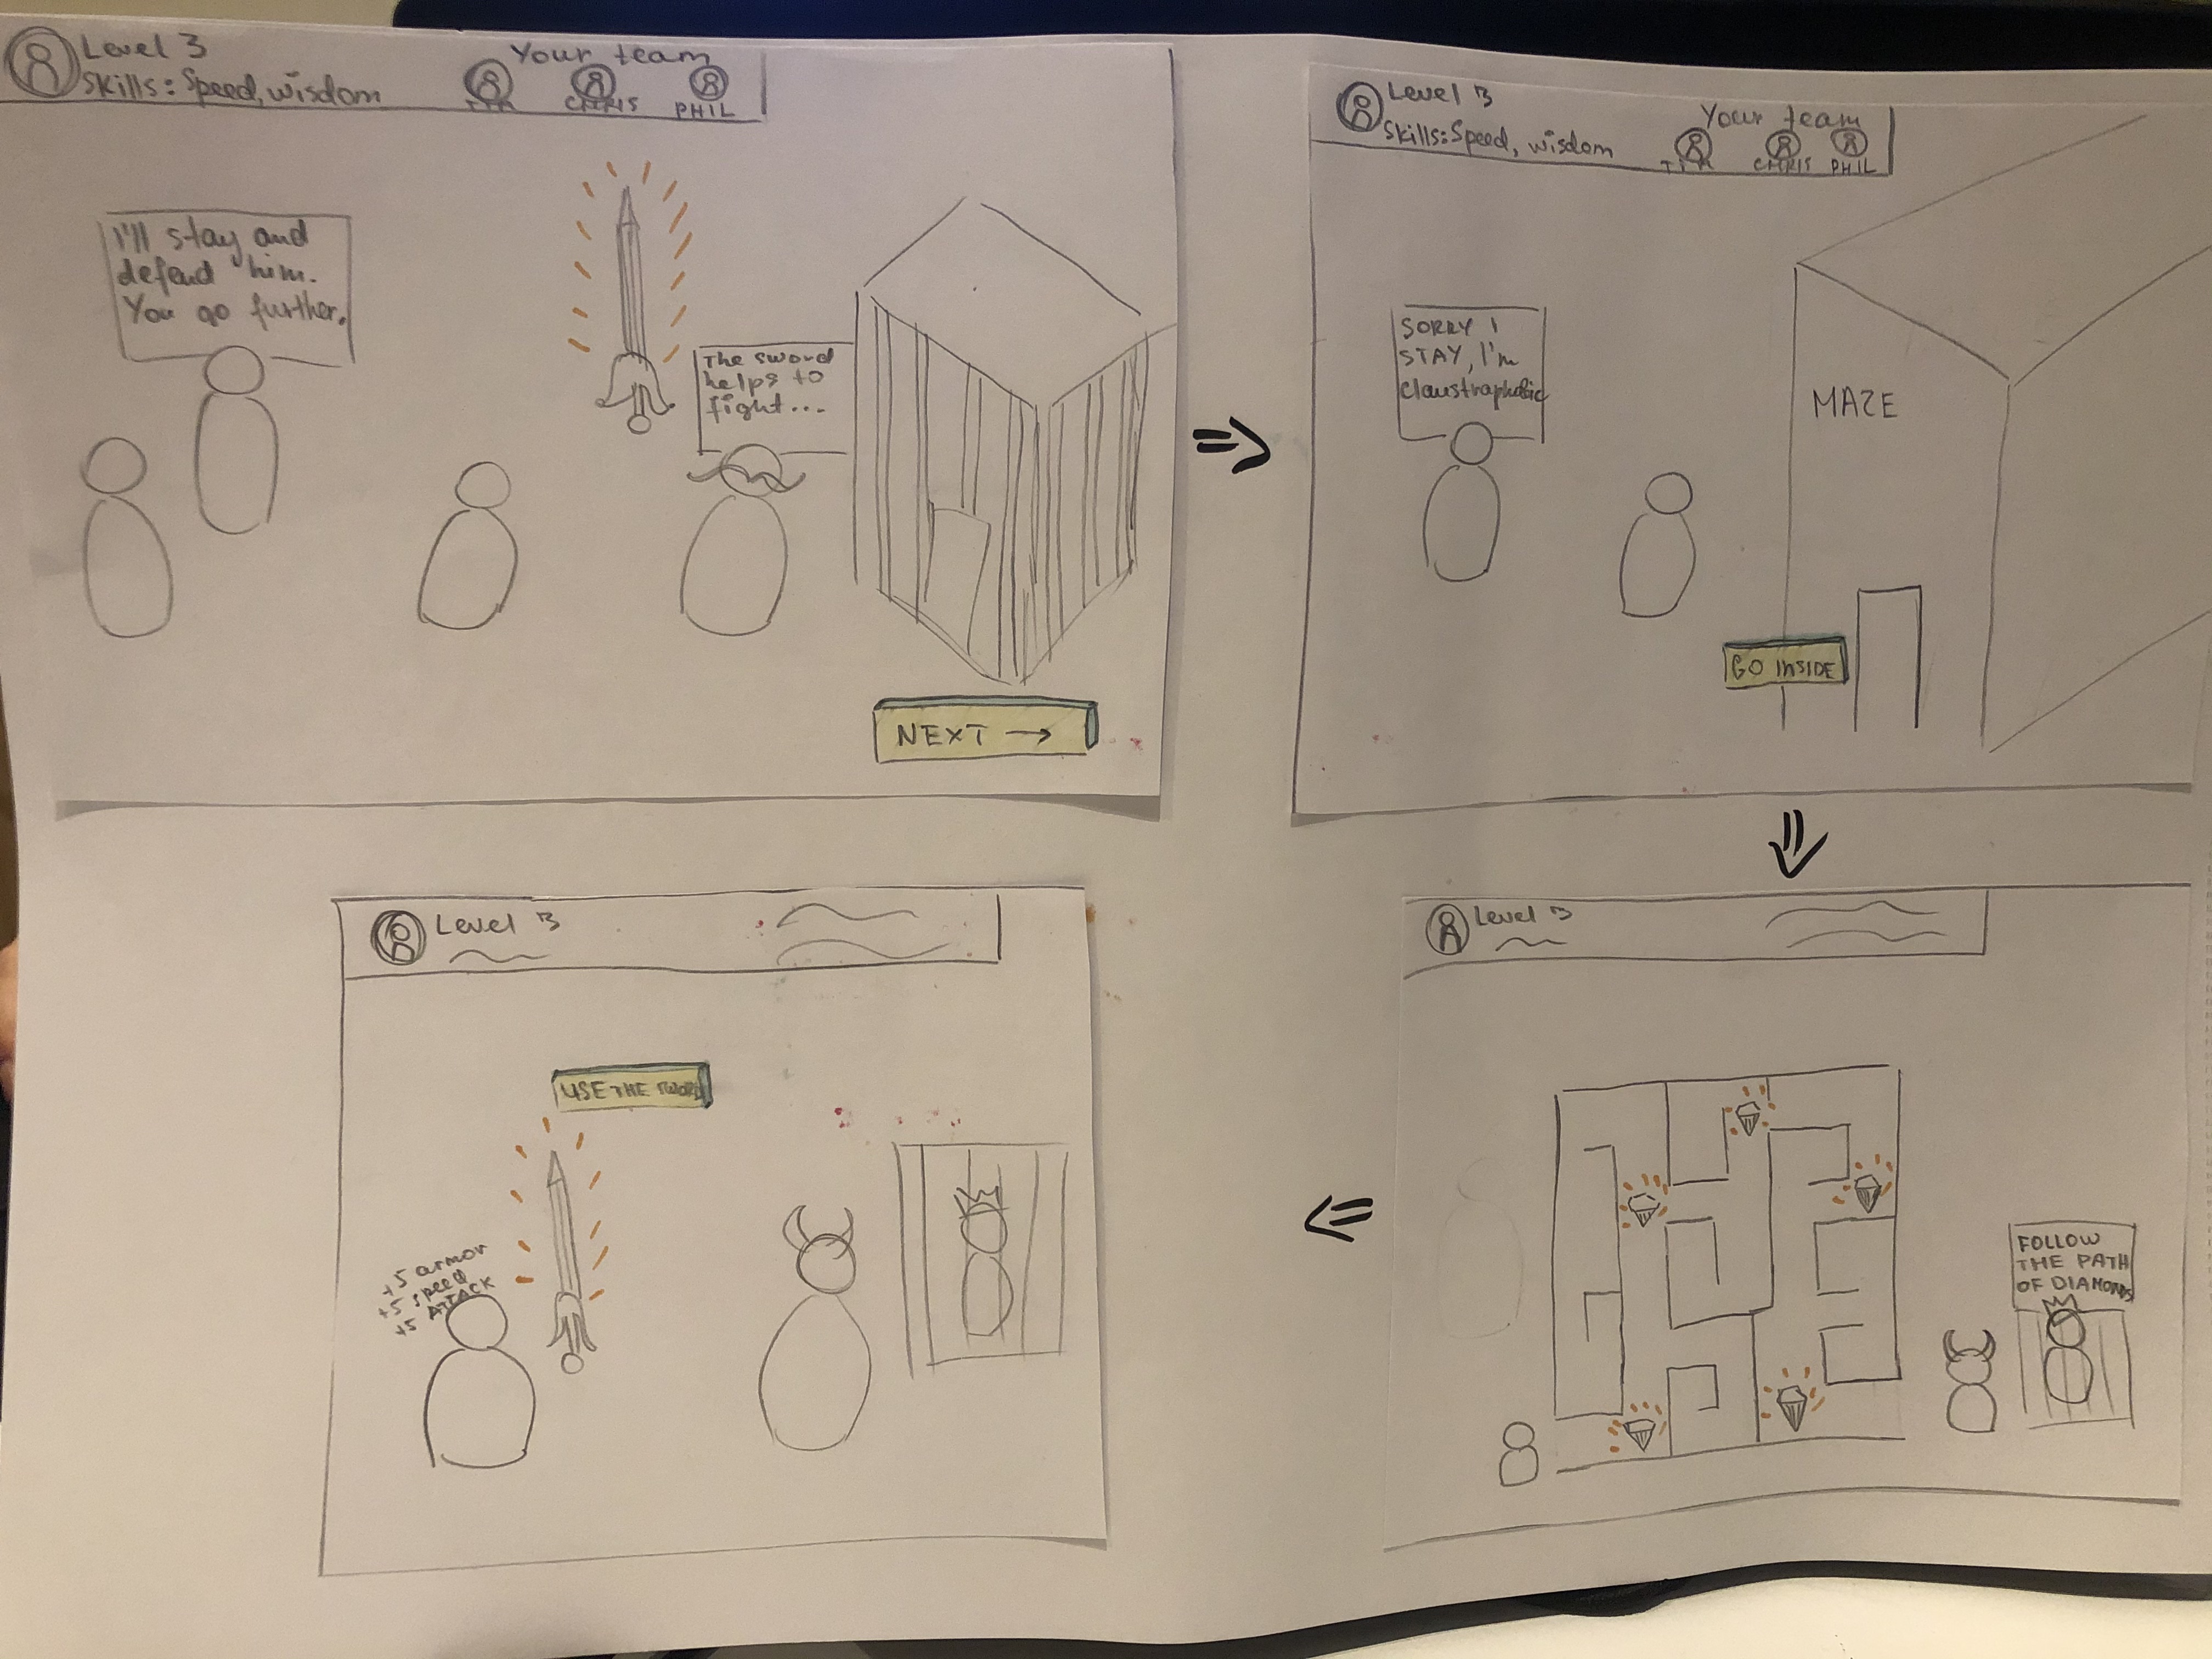 Level 3
Skills: Speed, wisdom
Your team
TIM CHRIS PHIL
I'll stay and
defend him.
You go further.
The sword
helps to
fight...
NEXT →
Level 3
Skills: Speed, wisdom
Your team
TIM CHRIS PHIL
SORRY I
STAY, I'm
claustraphobic
MAZE
GO INSIDE
Level 3
FOLLOW
THE PATH
OF DIAMONDS
Level 3
USE THE SWORD
+5 armor
+5 speed
+5 ATTACK